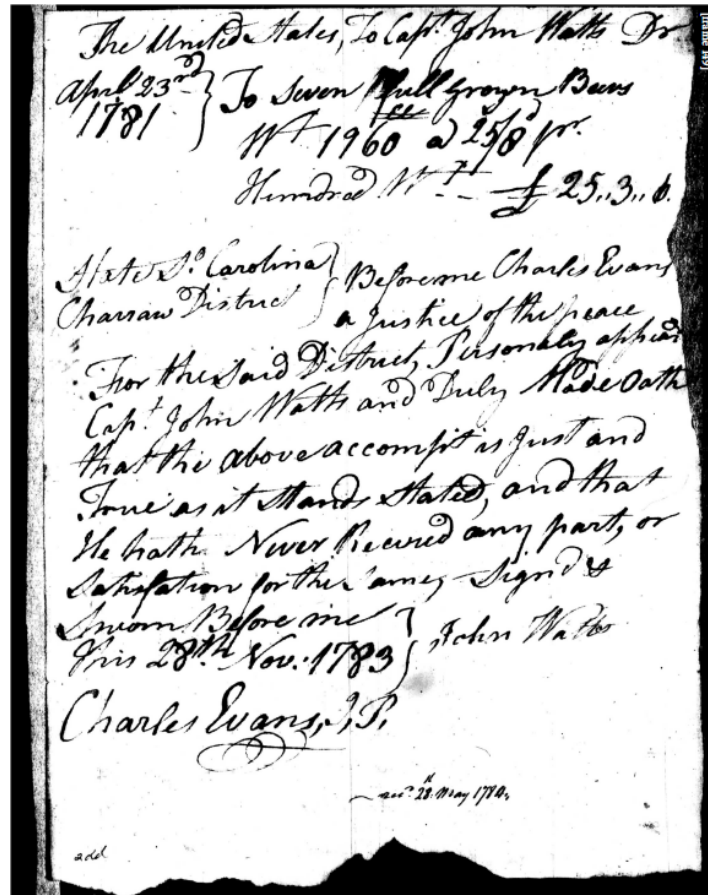 The United States, To Capt. John Watts Dr
April 23rd } To Seven full Grown Beevs
1781 Wt 1960 a 25/8 pr.
Hundred Wt -- £ 25,,3,,6.
State So. Carolina } Before me Charles Evans
Charraw District a Justice of the peace
For the Said District, Personaly appeard
Capt. John Watts and Duly Made Oath
that the above accompt is Just and
True as it Stands Stated, and that
He hath Never Recived any part, or
Satisfation for the Same, Signd &
Sworn Before me
this 28th Nov. 1783 } John Watts
Charles Evans, J, P,
28 May 1784